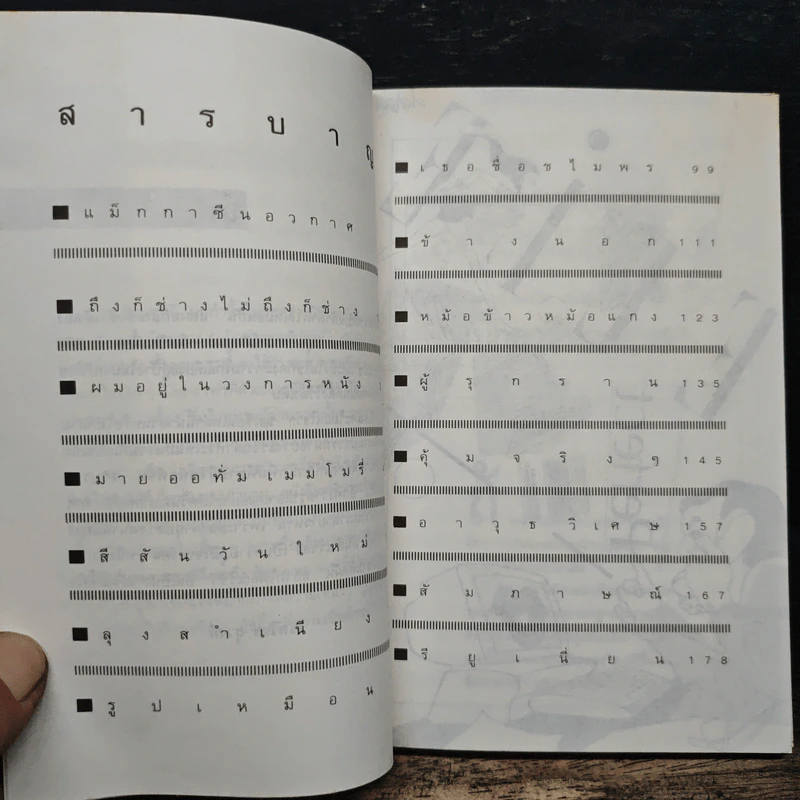 สารบาญ
■ แม็กกาซีนอวกาศ
■ ถึงก็ช่างไม่ถึงก็ช่าง
■ ผมอยู่ในวงการหนัง
■ มายออทั่มเมมโมรี่
■ สีสันวันใหม่
■ ลุงสำเนียง
■ รูปเหมือน
■ เธอชื่อชไมพร 99
■ ข้างนอก 111
■ หม้อข้าวหม้อแกง 123
■ ผู้รุกราน 135
■ คุ้มจริงๆ 145
■ อาวุธวิเศษ 157
■ สัมภาษณ์ 167
■ รียูเนี่ยน 178